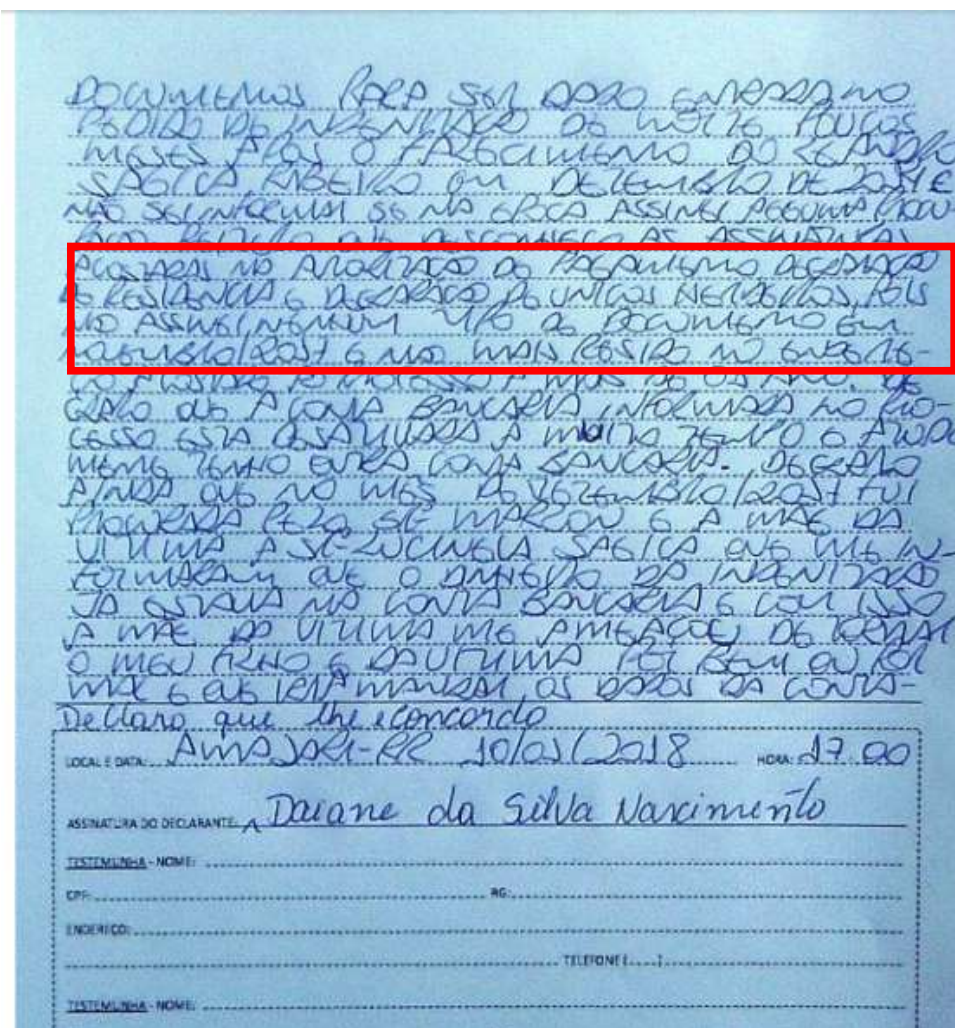 DOCUMENTOS PARA SER DADO ENTRADA NO
PEDIDO DE INDENIZAÇÃO DE MORTE POUCOS
MESES APÓS O FALECIMENTO DO LEANDRO
RIBEIRO EM DEZEMBRO DE
NÃO SEI INFORMAR SE NA EPOCA ASSINEI ALGUMA PROCU-
RAÇÃO QUE DESCONHECO AS ASSINATURAS
ACOSTADAS NA AUTORIZAÇÃO DE PAGAMENTO DECLARAÇÃO
DE RESIDENCIA E DECLARAÇÃO DE UNICOS HERDEIROS, POIS
NÃO ASSINEI NENHUM TIPO DE DOCUMENTO EM
E NÃO MAIS RESIDO NO ENDERE-
ÇO ACOSTADO A MAIS DE ANO. DE
CLARO QUE A CONTA BANCARIA INFORMADA NO PRO-
CESSO ESTA DESATIVADA A MUITO TEMPO E ATUAL
MENTE TENHO OUTRA CONTA BANCARIA. DECLARO
AINDA QUE NO MES DE FUI
PROCURADA PELO SR MARCON E A MÃE DA
VITIMA A SRª LUCINEIA QUE ME IN-
FORMARAM QUE O DINHEIRO DA INDENIZAÇÃO
JA ESTAVA NA CONTA BANCARIA E COM ISSO
A MÃE DA VITIMA ME AMEAÇOU DE TOMAR
O MEU FILHO E DA VITIMA POR BEM OU POR
MAL E QUE MANDAR OS DADOS DA CONTA-
Declaro que li e concordo
LOCAL E DATA: AMAJARI-RR 10/01/2018 HORA: 17:00
ASSINATURA DO DECLARANTE: Daiane da Silva Nascimento
TESTEMUNHA - NOME:
CPF: RG:
ENDEREÇO:
TELEFONE ( )
TESTEMUNHA - NOME: